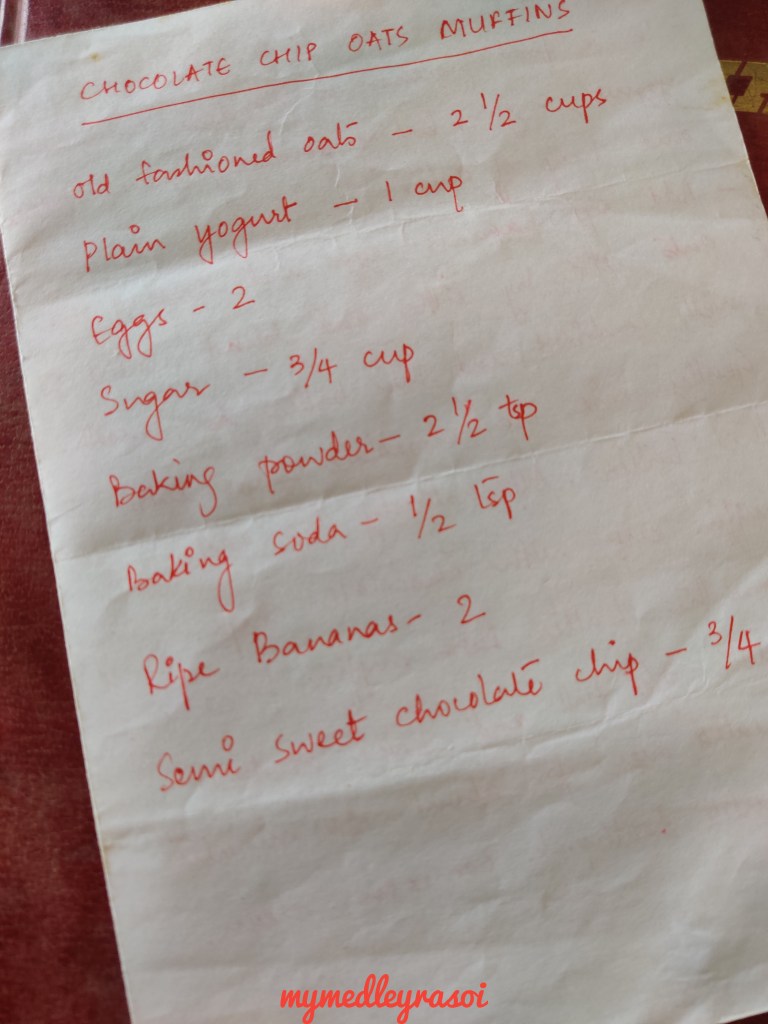 CHOCOLATE CHIP OATS MUFFINS
old fashioned oats - 2 1/2 cups
Plain yogurt - 1 cup
Eggs - 2
Sugar - 3/4 cup
Baking powder - 2 1/2 tsp
Baking soda - 1/2 tsp
Ripe Bananas - 2
Semi sweet chocolate chip - 3/4
mymedleyrasoi